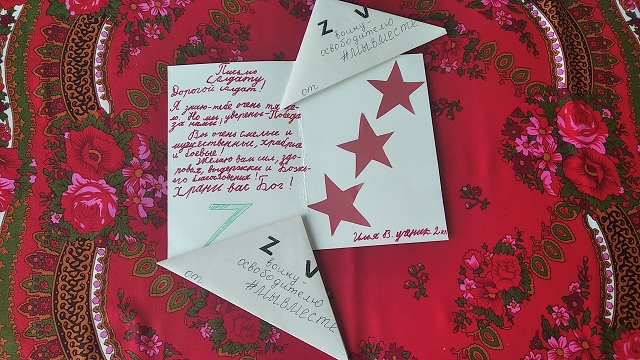 Письмо
Солдату,
Дорогой солдат!
Я знаю-тебе очень тяже-
ло. Но мы, уверены-Победа
за нами!
Вы очень смелые и
мужественные, храбрые
и боевые!
Желаю вам сил, здо-
ровья, выдержки и Божь-
его благословения!
Храни вас Бог!
Z
Илья В. ученик 2 кл
Z V
воину-
освободителю
#МЫВМЕСТЕ
от
Z V
воину-
освободителю
#МЫВМЕСТЕ
от